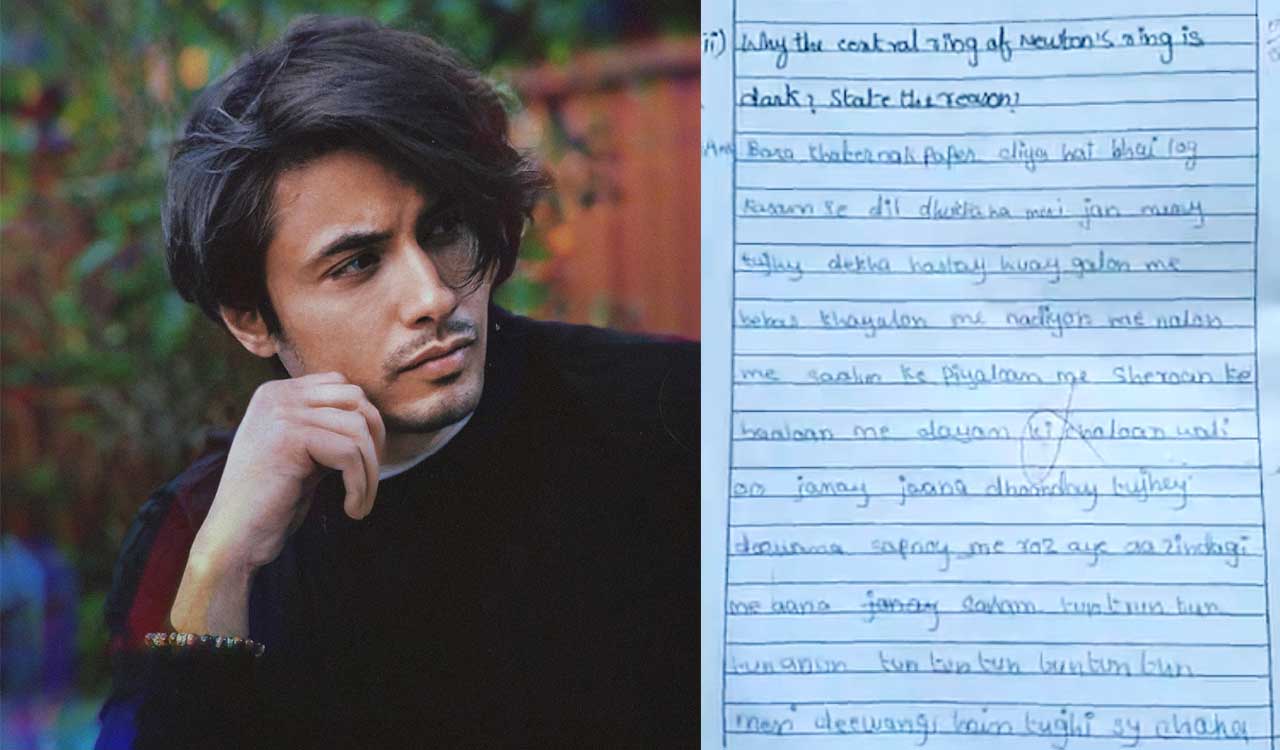 ii) Why the central ring of Newton's ring is
dark? State the reason?
Ans Bara khaternak paper diya hai bhai log
Kasam se dil dhukha ha meri jan
tujhy dekha hastay huay galon me
khayalon me nadiyon me nalon
me ke piyaloan me Sheroan ke
baaloan me dayam ki chaloan wali
oo janay jaana dhoonday tujhey
deewana sapnay me roz aye aa zindagi
me aana janay sanam tun tun tun
tun tun tun tun tun tun tun
meri deewangi tujhi sy chaha